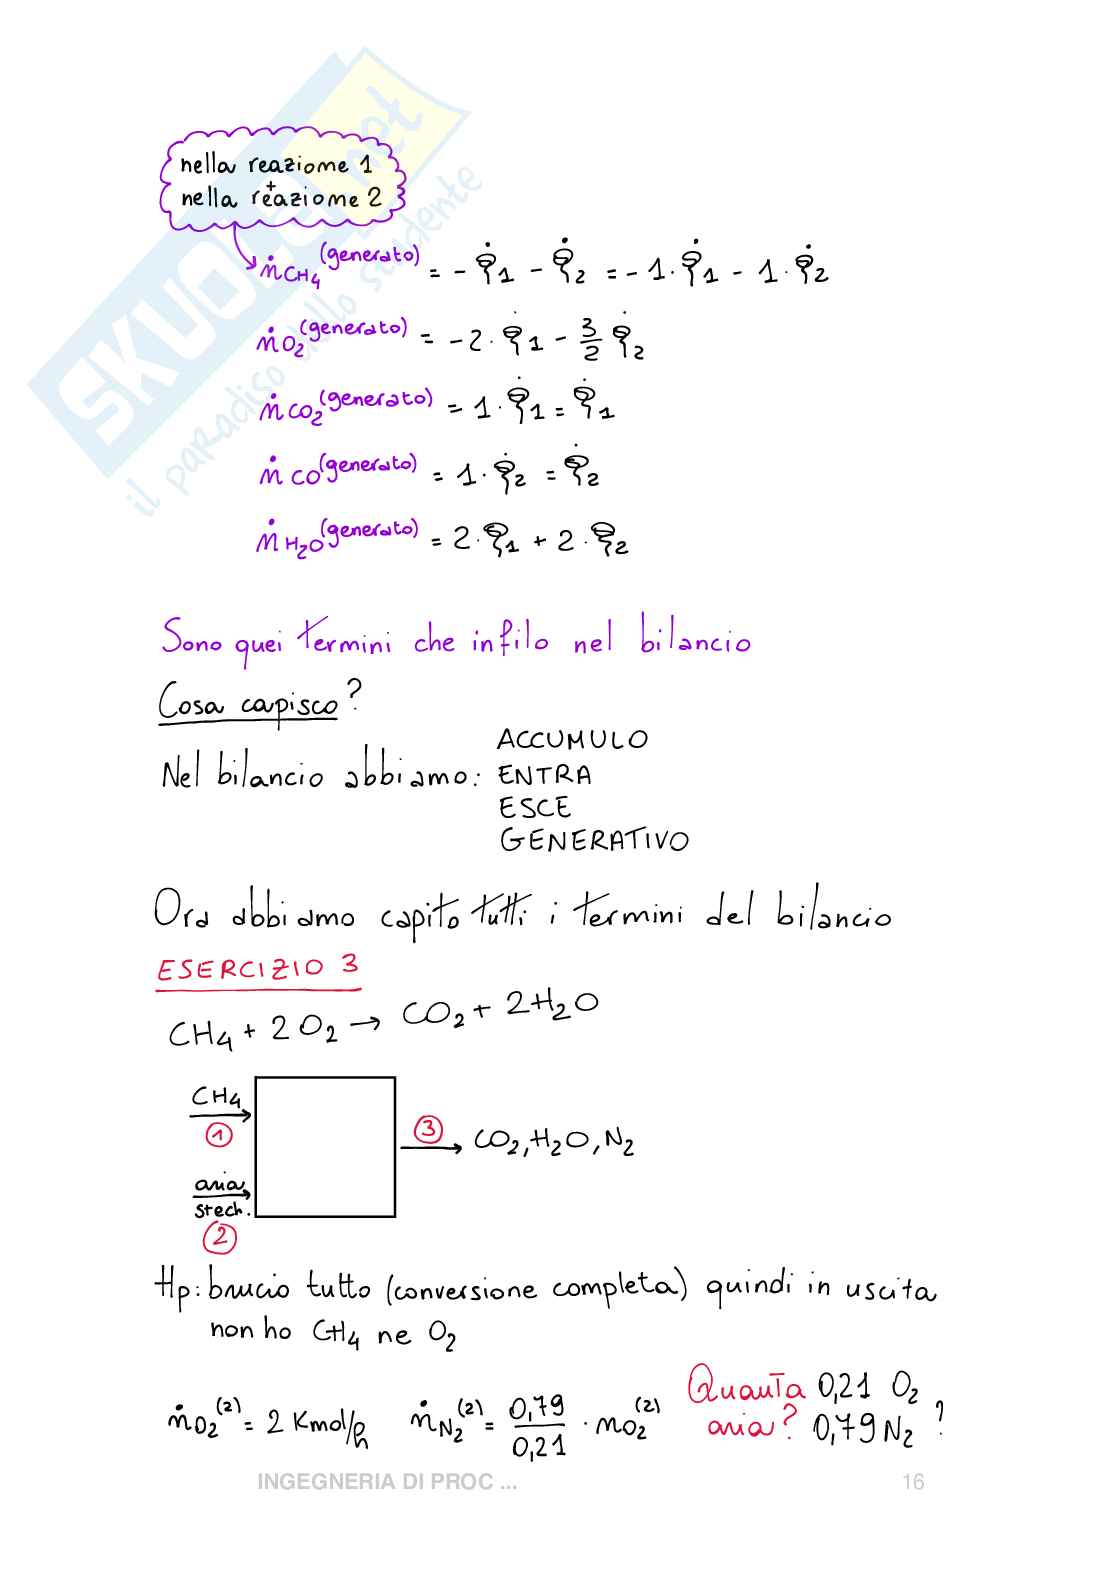 SKUOLA.net
il paradiso dello studente
nella reazione 1
+
nella reazione 2
ṅCH₄(generato) = - ξ̇1 - ξ̇2 = - 1·ξ̇1 - 1·ξ̇2
ṅO₂(generato) = -2·ξ̇1 - 3/2 ξ̇2
ṅCO₂(generato) = 1·ξ̇1 = ξ̇1
ṅCO(generato) = 1·ξ̇2 = ξ̇2
ṅH₂O(generato) = 2·ξ1 + 2·ξ2
Sono quei termini che infilo nel bilancio
Cosa capisco?
Nel bilancio abbiamo: ACCUMULO
ENTRA
ESCE
GENERATIVO
Ora abbiamo capito tutti i termini del bilancio
ESERCIZIO 3
CH₄ + 2O₂ → CO₂ + 2H₂O
CH₄
1
3
CO₂, H₂O, N₂
aria
stech.
2
Hp: brucio tutto (conversione completa) quindi in uscita
non ho CH₄ ne O₂
ṅO₂⁽²⁾ = 2 Kmol/h ṅN₂⁽²⁾ = 0,79/0,21 · nO₂⁽²⁾ Quanta 0,21 O₂
aria? 0,79 N₂ ?
INGEGNERIA DI PROC ... 16